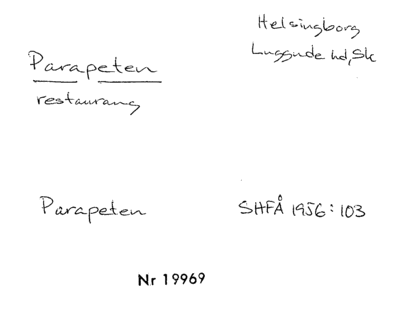 Helsingborg
Luggude hd, Sk
Parapeten
restaurang
Parapeten SHFÅ 1956:103
Nr 19969